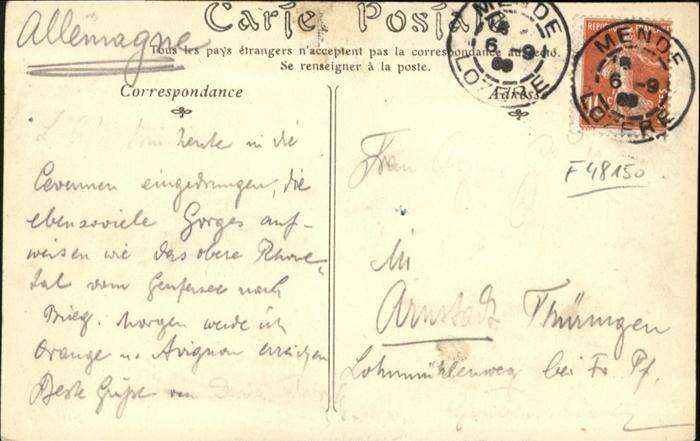 Carte Postale
Allemagne
Tous les pays étrangers n'acceptent pas la correspondance au recto.
Se renseigner à la poste.
Correspondance
Adresse
MENDE
6 -9
LOZERE
MENDE
6 -9
LOZERE
REPUBLIQUE
10
F 48150
heute in die
Cevennen eingedrungen, die
ebensoviele Gorges auf-
weisen wie das obere Rhone-
tal vom Genfersee nach
Brieg. Morgen werde ich
Orange u. Avignon erreichen
Beste Grüße von
Frau
In
Arnstadt Thüringen
Lohmühlenweg bei Fr. Pf.